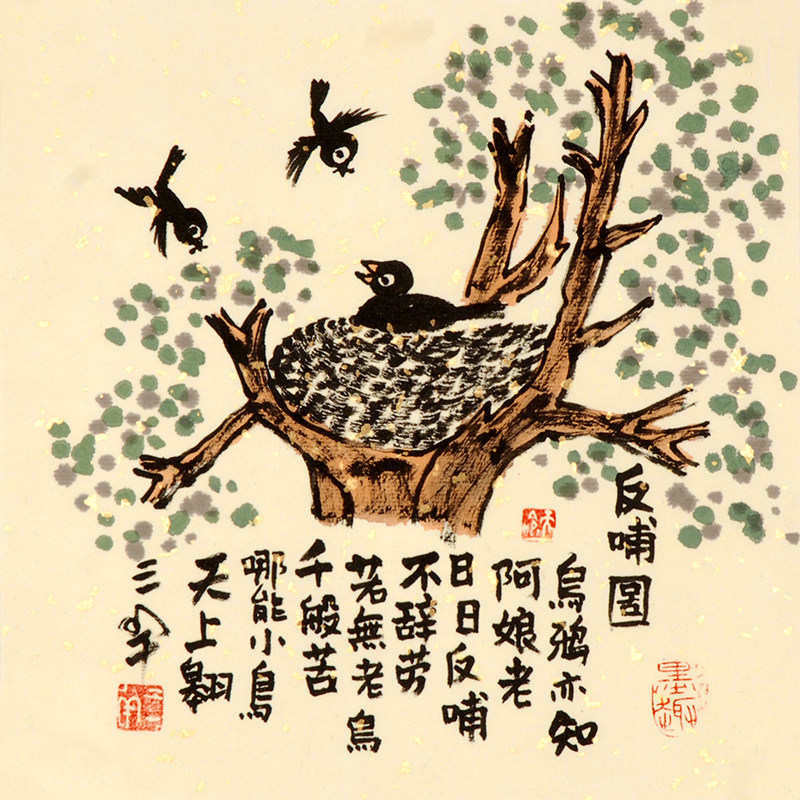 反哺圖
烏鴉亦知
阿娘老
日日反哺
不辞劳
若無老鳥
千般苦
哪能小鳥
天上翱
三
墨趣